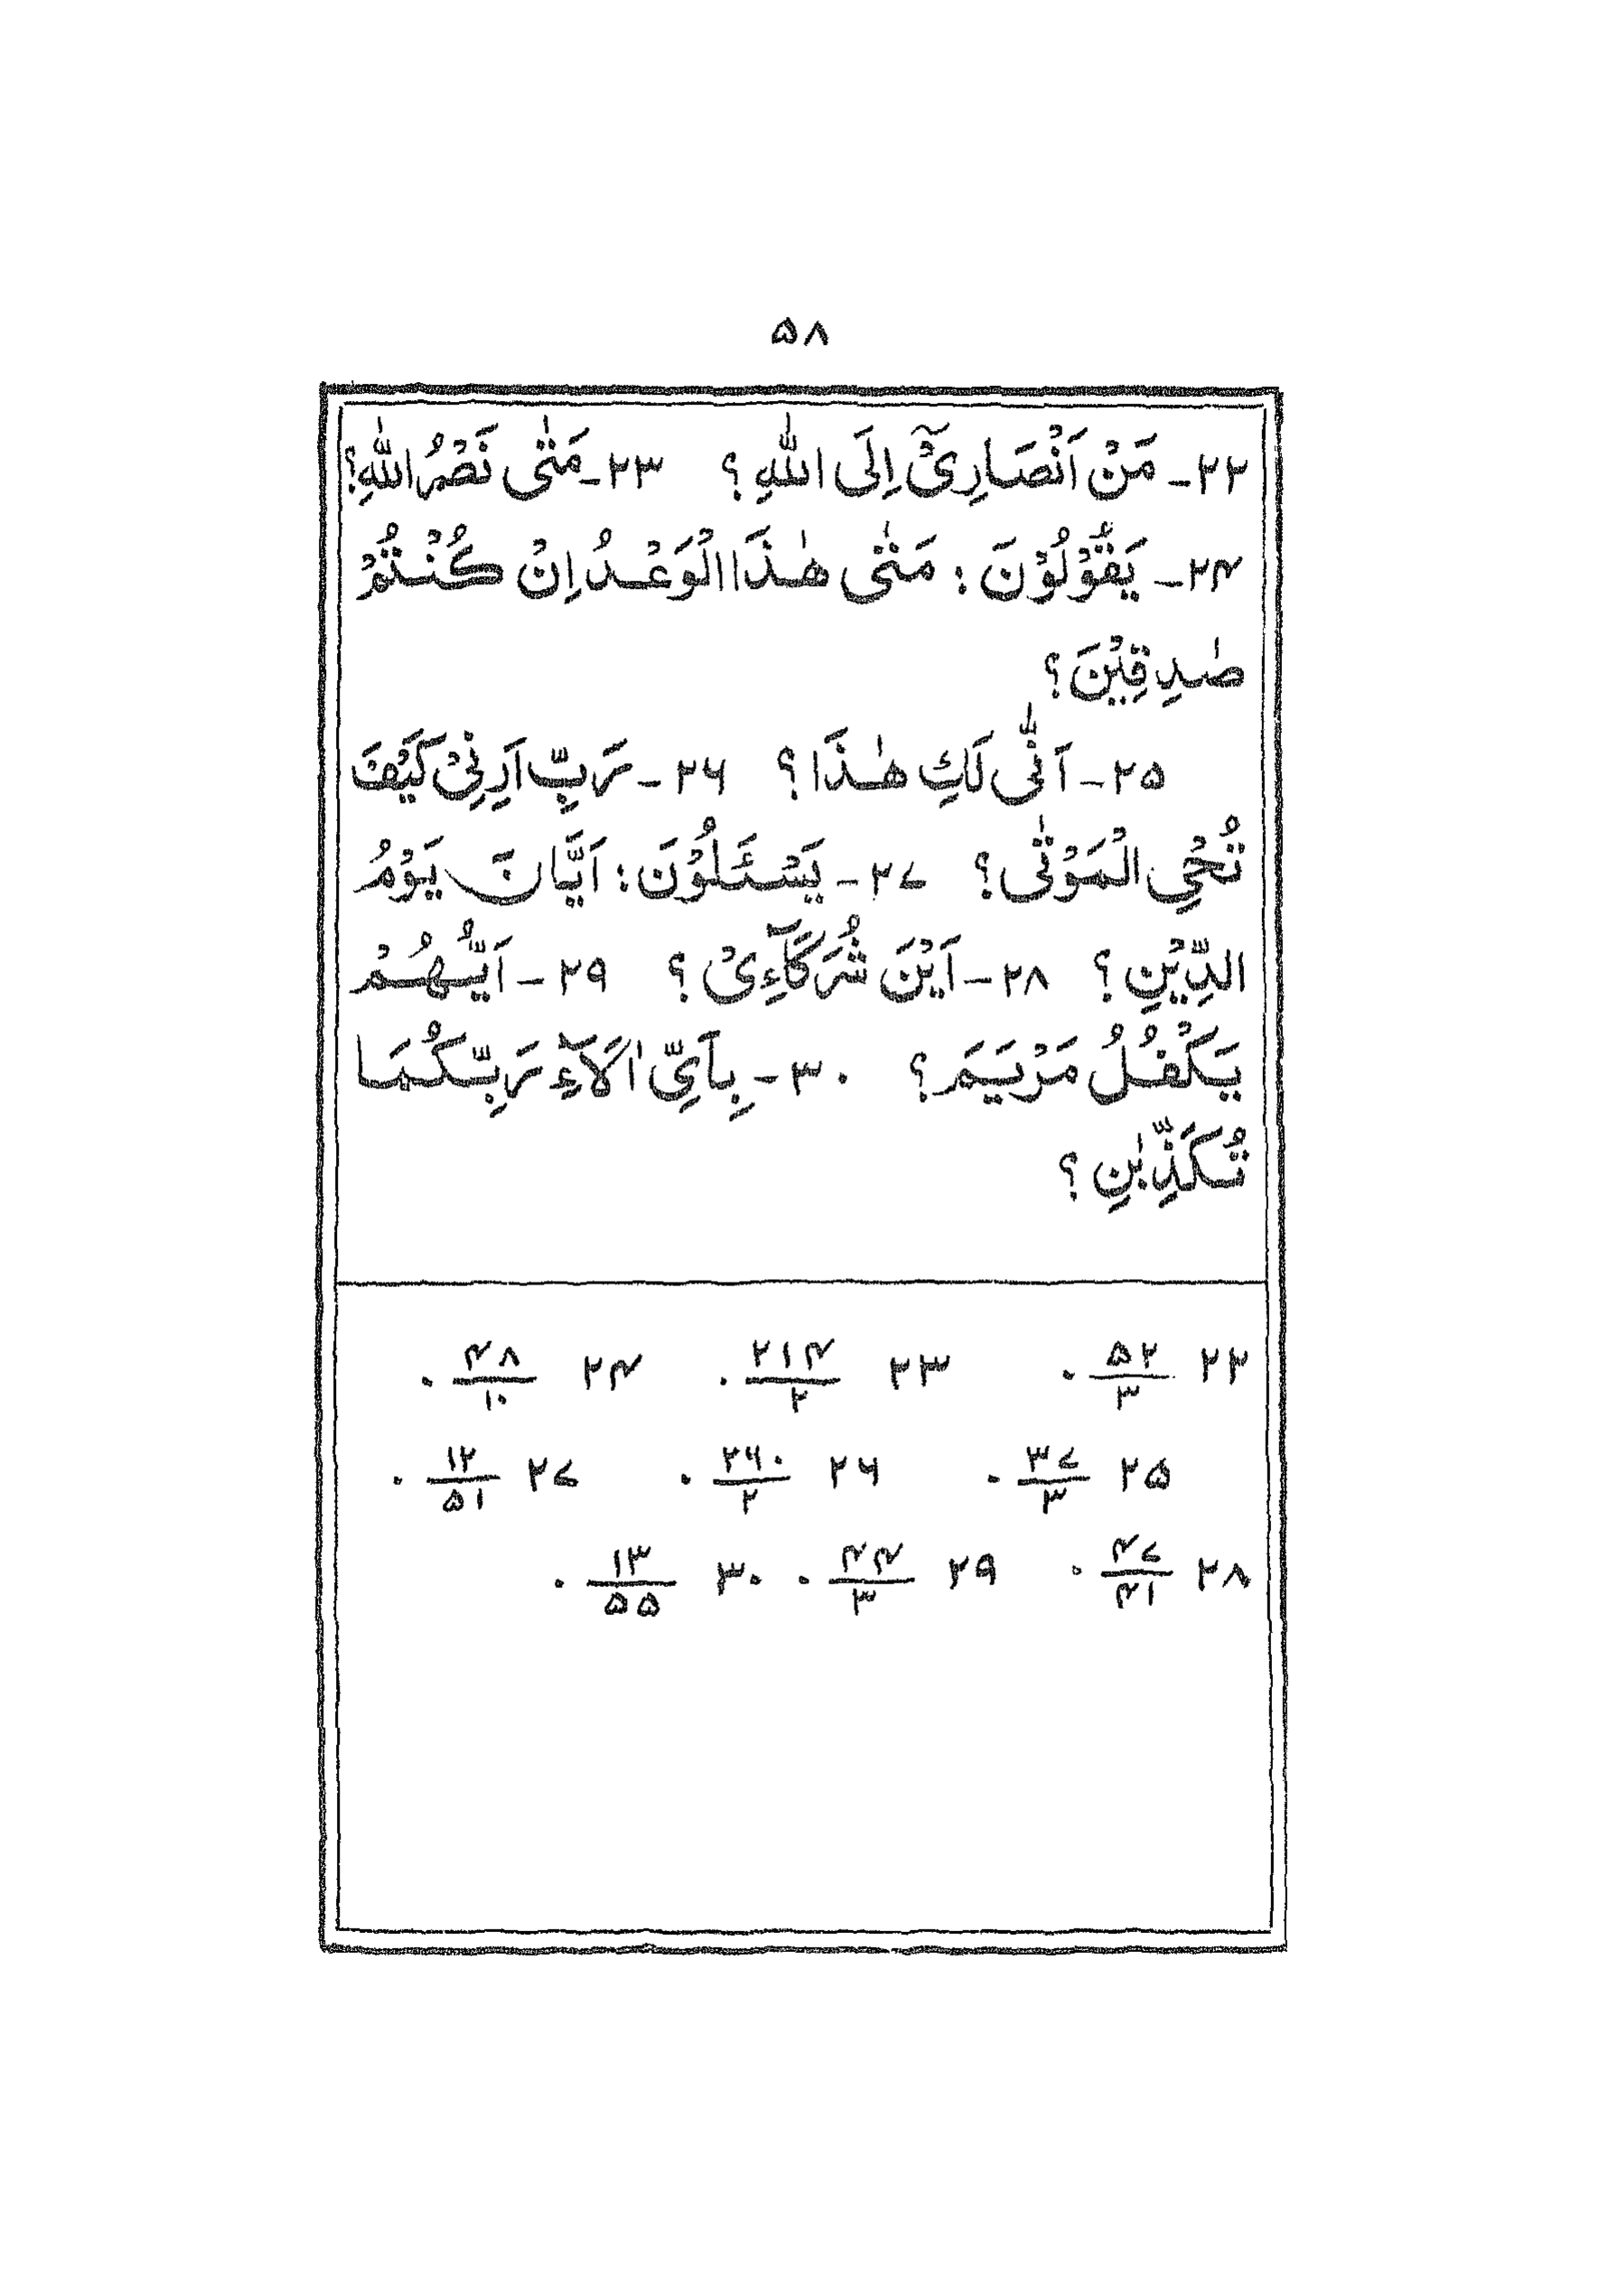 ۵۸
۲۲- مَنْ اَنْصَارِیْۤ اِلَی اللّٰهِ ؟ ۲۳- مَتٰی نَصْرُ اللّٰهِ ؟
۲۴- یَقُوْلُوْنَ : مَتٰی هٰذَا الْوَعْدُ اِنْ كُنْتُمْ
صٰدِقِیْنَ ؟
۲۵- اَنّٰی لَكِ هٰذَا ؟ ۲۶- رَبِّ اَرِنِیْ كَیْفَ
تُحْیِ الْمَوْتٰی ؟ ۲۷- یَسْئَلُوْنَ : اَیَّانَ یَوْمُ
الدِّیْنِ ؟ ۲۸- اَیْنَ شُرَكَآءِیْ ؟ ۲۹- اَیُّهُمْ
یَكْفُلُ مَرْیَمَ ؟ ۳۰- بِاَیِّ اٰلَآءِ رَبِّكُمَا
تُكَذِّبٰنِ ؟
۲۲ ۵۲/۳ ۰ ۲۳ ۲۱۴/۲ ۰ ۲۴ ۴۸/۱۰ ۰
۲۵ ۳۷/۳ ۰ ۲۶ ۲۶۰/۲ ۰ ۲۷ ۱۲/۵۱ ۰
۲۸ ۴۷/۴۱ ۰ ۲۹ ۴۴/۳ ۰ ۳۰ ۱۳/۵۵ ۰